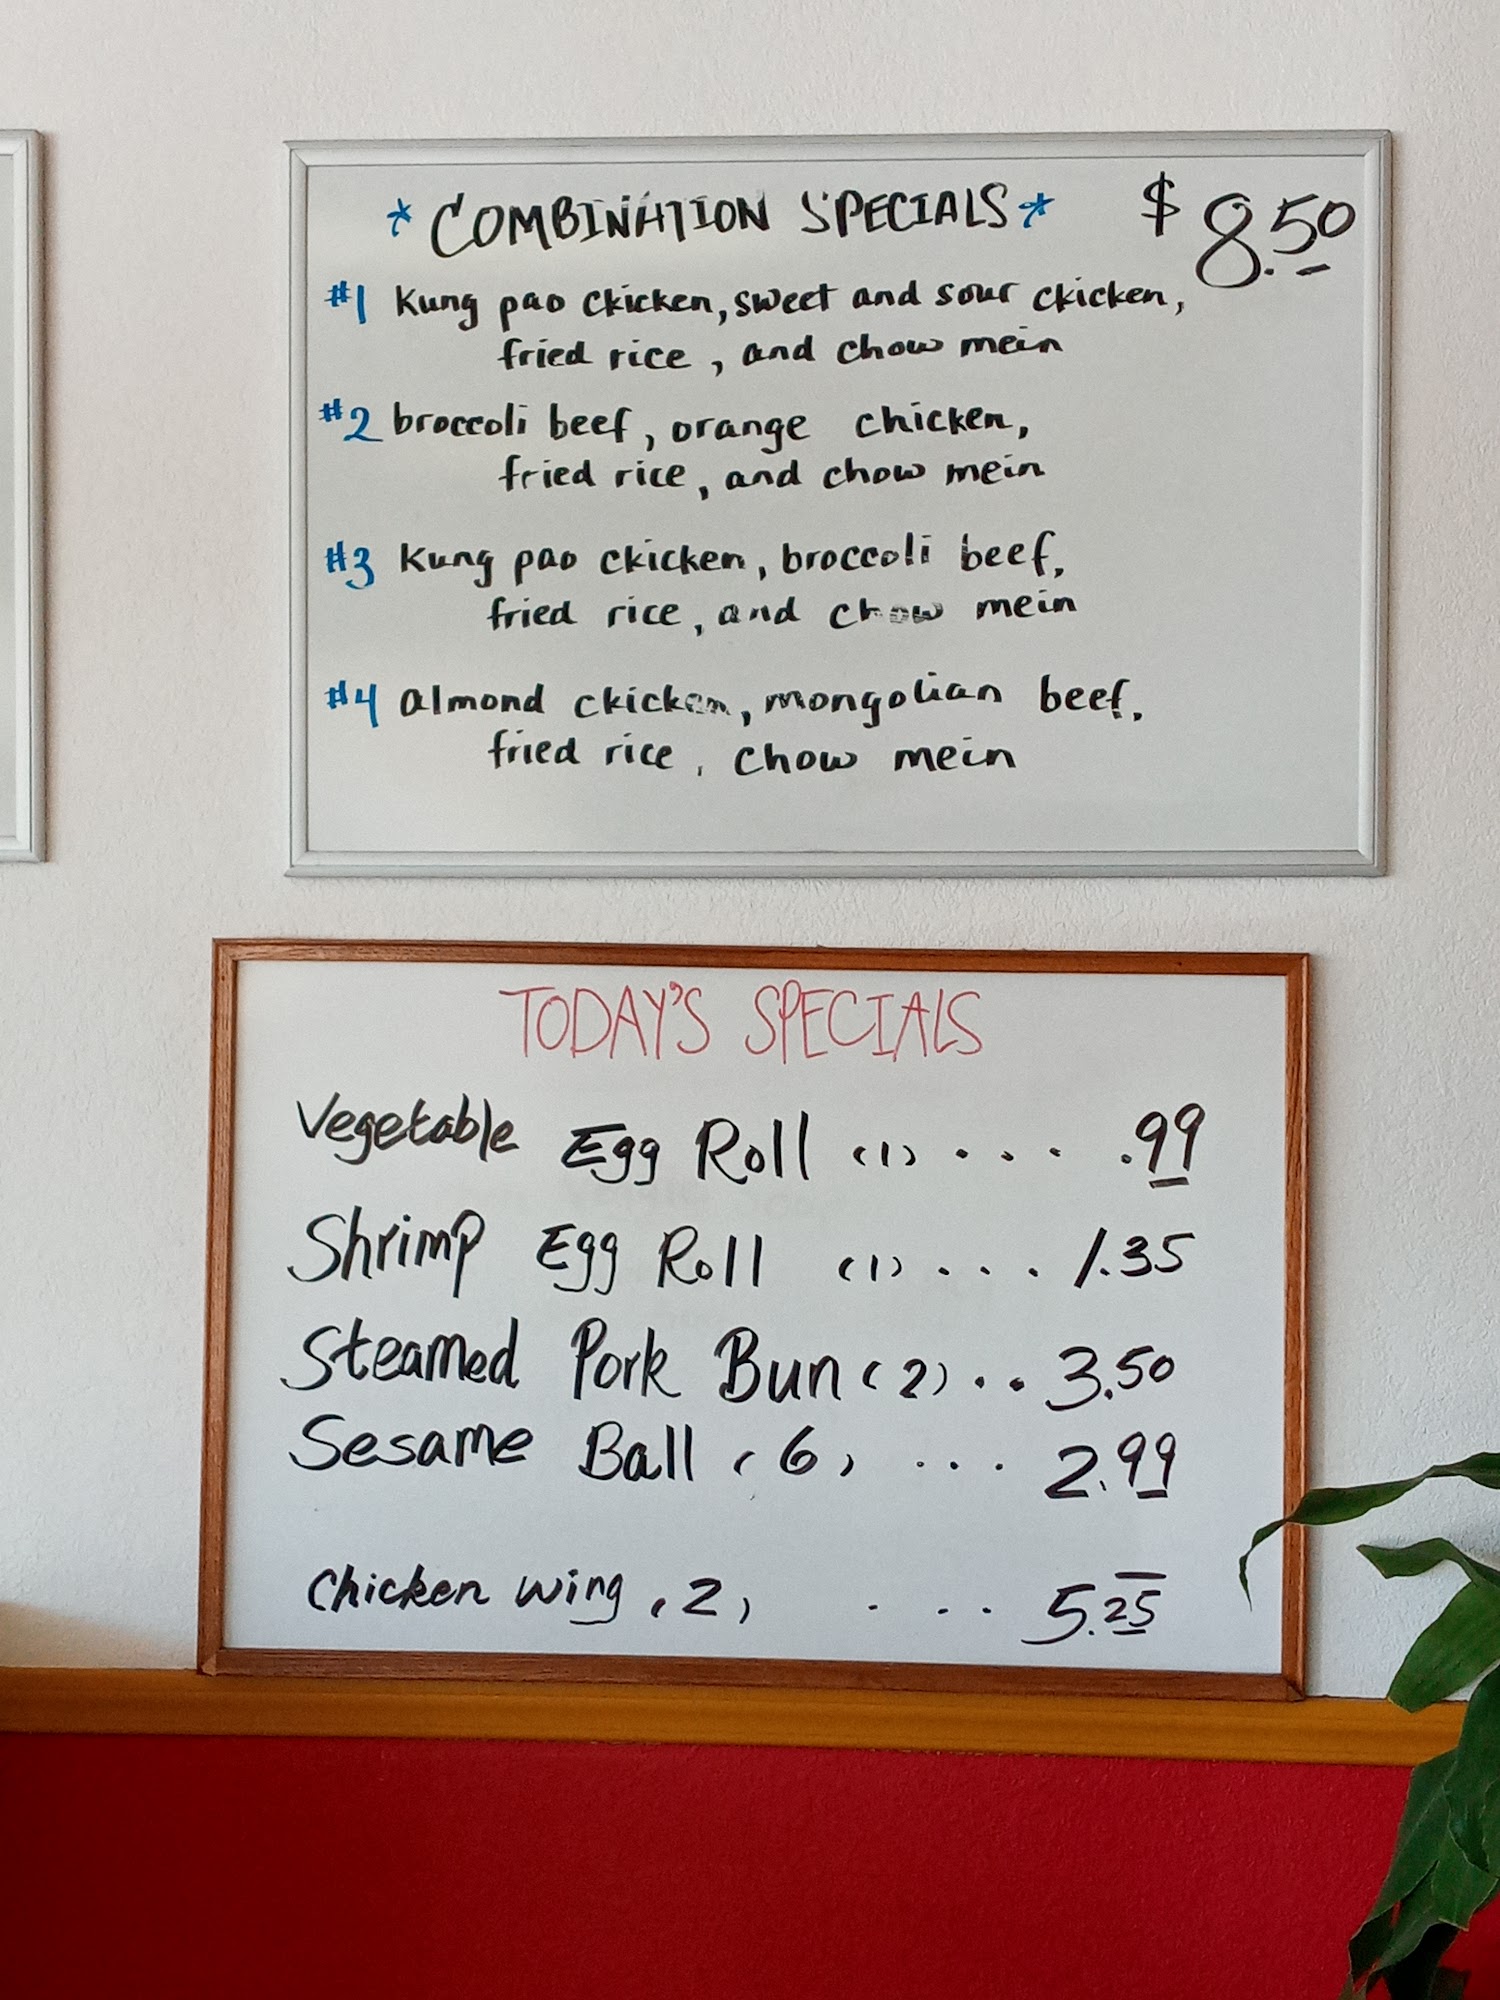 * COMBINATION SPECIALS * $8.50
#1 Kung pao ckicken, sweet and sour ckicken,
fried rice, and chow mein
#2 broccoli beef, orange chicken,
fried rice, and chow mein
#3 Kung pao ckicken, broccoli beef,
fried rice, and chow mein
#4 almond ckicken, mongolian beef,
fried rice, chow mein
TODAY'S SPECIALS
Vegetable Egg Roll (1) .... .99
Shrimp Egg Roll (1) .... 1.35
Steamed Pork Bun (2) .. 3.50
Sesame Ball (6) ... 2.99
Chicken wing (2) ... 5.25